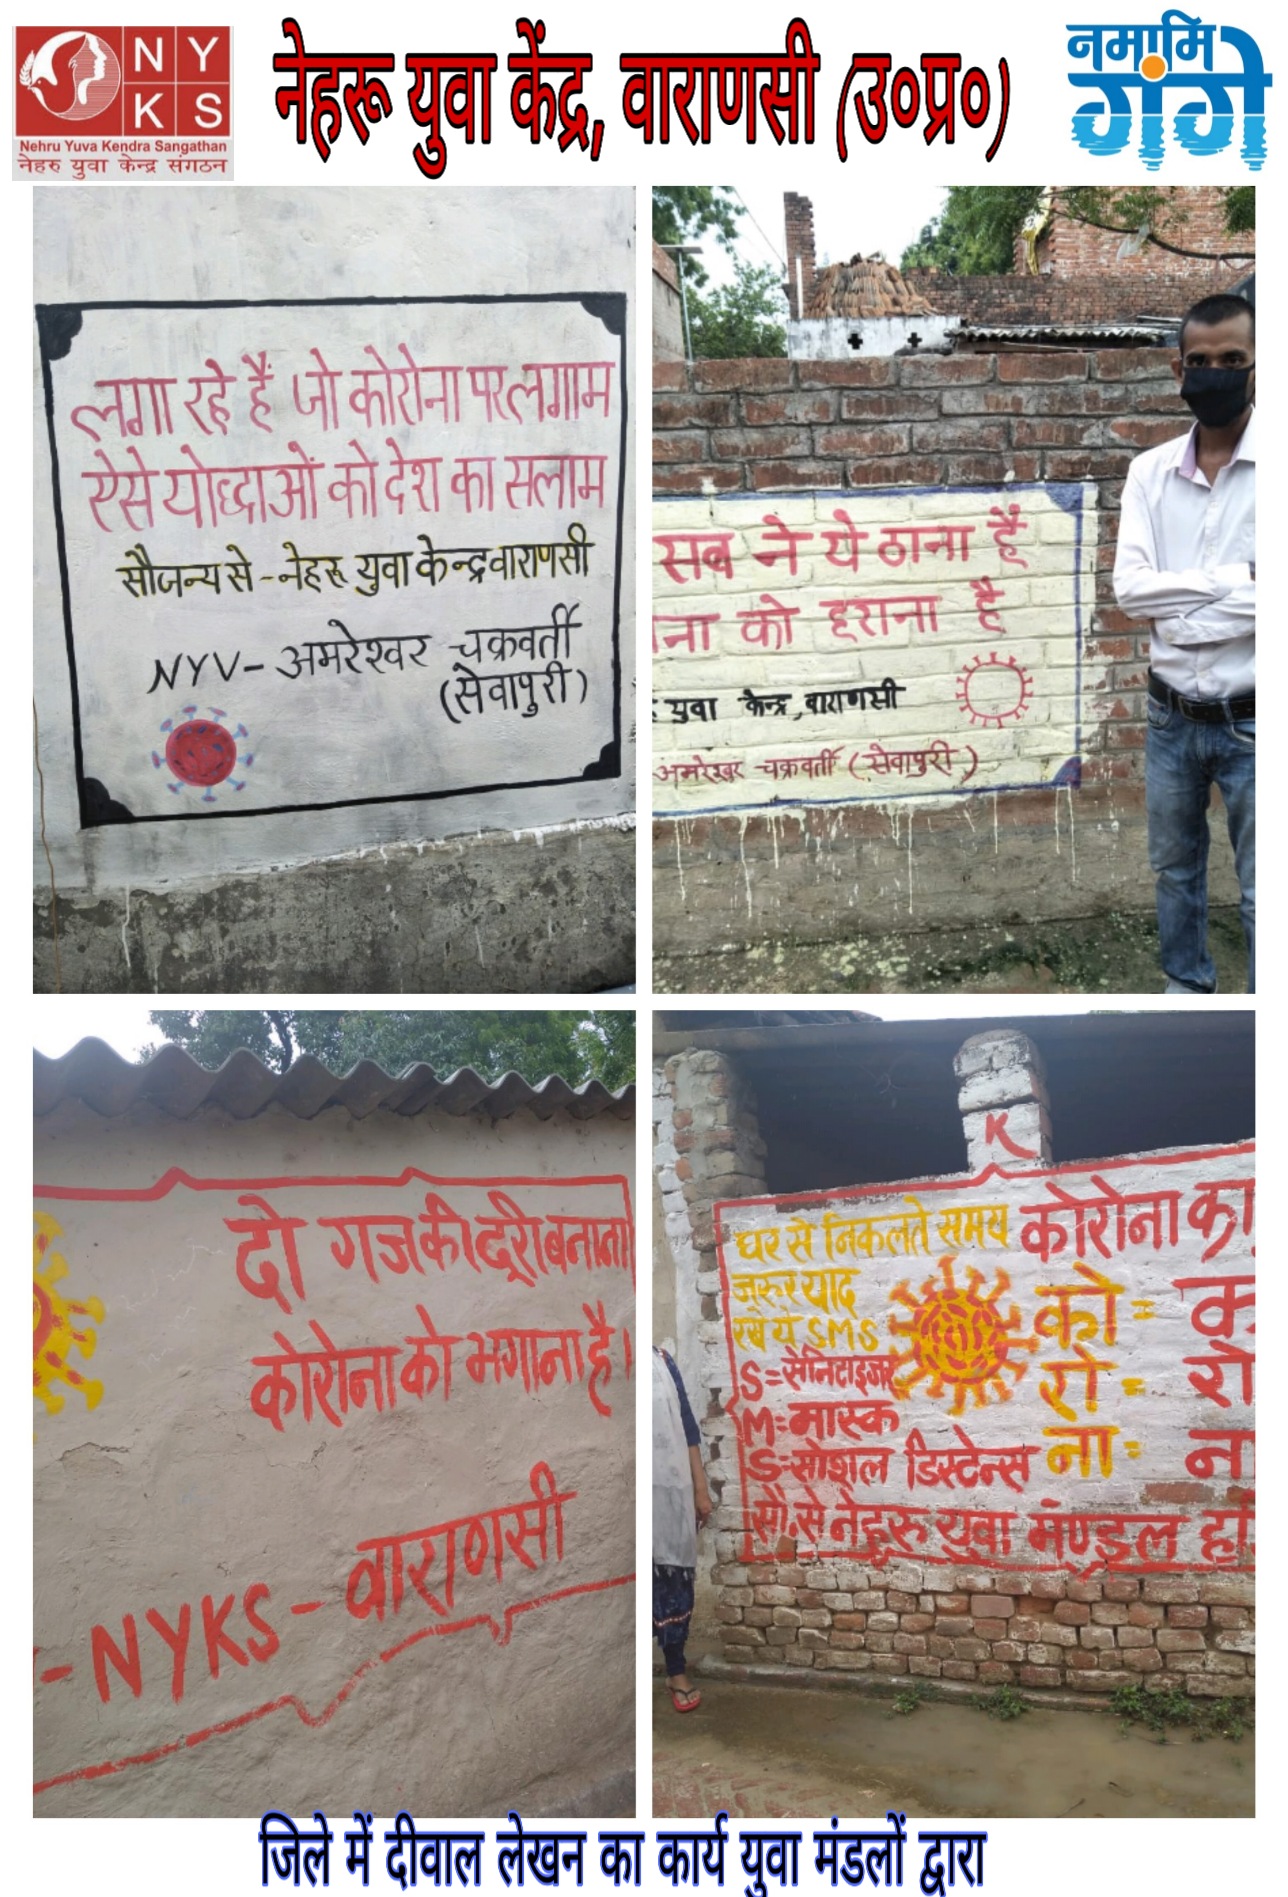 NYKS
Nehru Yuva Kendra Sangathan
नेहरु युवा केन्द्र संगठन
नेहरू युवा केंद्र, वाराणसी (उ०प्र०)
नमामि
गंगे
लगा रहे हैं जो कोरोना पर लगाम
ऐसे योद्धाओं को देश का सलाम
सौजन्य से - नेहरू युवा केन्द्र वाराणसी
NYV - अमरेश्वर चक्रवर्ती
(सेवापुरी)
सब ने ये ठाना है
ना को हराना है
युवा केन्द्र, वाराणसी
अमरेश्वर चक्रवर्ती (सेवापुरी)
दो गज की दूरी बनाना
कोरोना को भगाना है।
- NYKS - वाराणसी
K
घर से निकलते समय
जरुर याद
रखे ये SMS
S = सेनिटाइजर
M = मास्क
S = सोशल डिस्टेन्स
कोरोना का
को = क
रो = रो
ना = न
सौ. से नेहरु युवा मण्डल
जिले में दीवाल लेखन का कार्य युवा मंडलों द्वारा